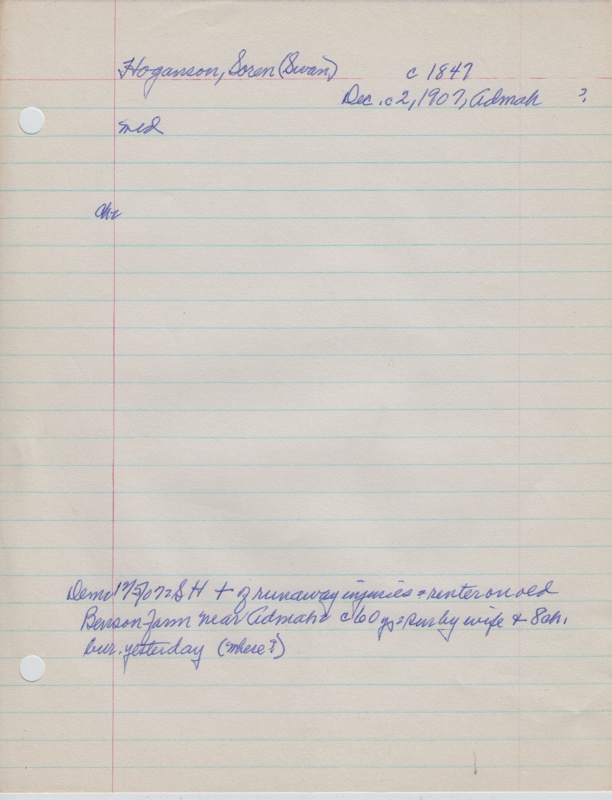 Hoganson, Soren (Swan) c 1847
Dec. c 2, 1907, Admah ?
md
ch:
Demo 12/5/07= S H + of runaway injuries = renter on old
Benson Farm near Admah= c 60 yrs= sur by wife + 8 ch.
bur. yesterday (where?)